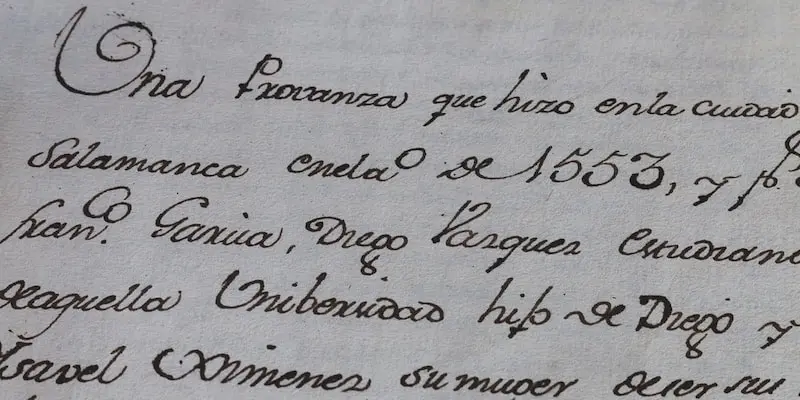 Una Provanza que hizo enla ciudad
Salamanca enel a.º de 1553, y p.r
Fran.co Garcia, Diego Vazquez estudian
deaquella Unibersidad hijo de Diego y
Ysavel Ximenez su muger deser sus